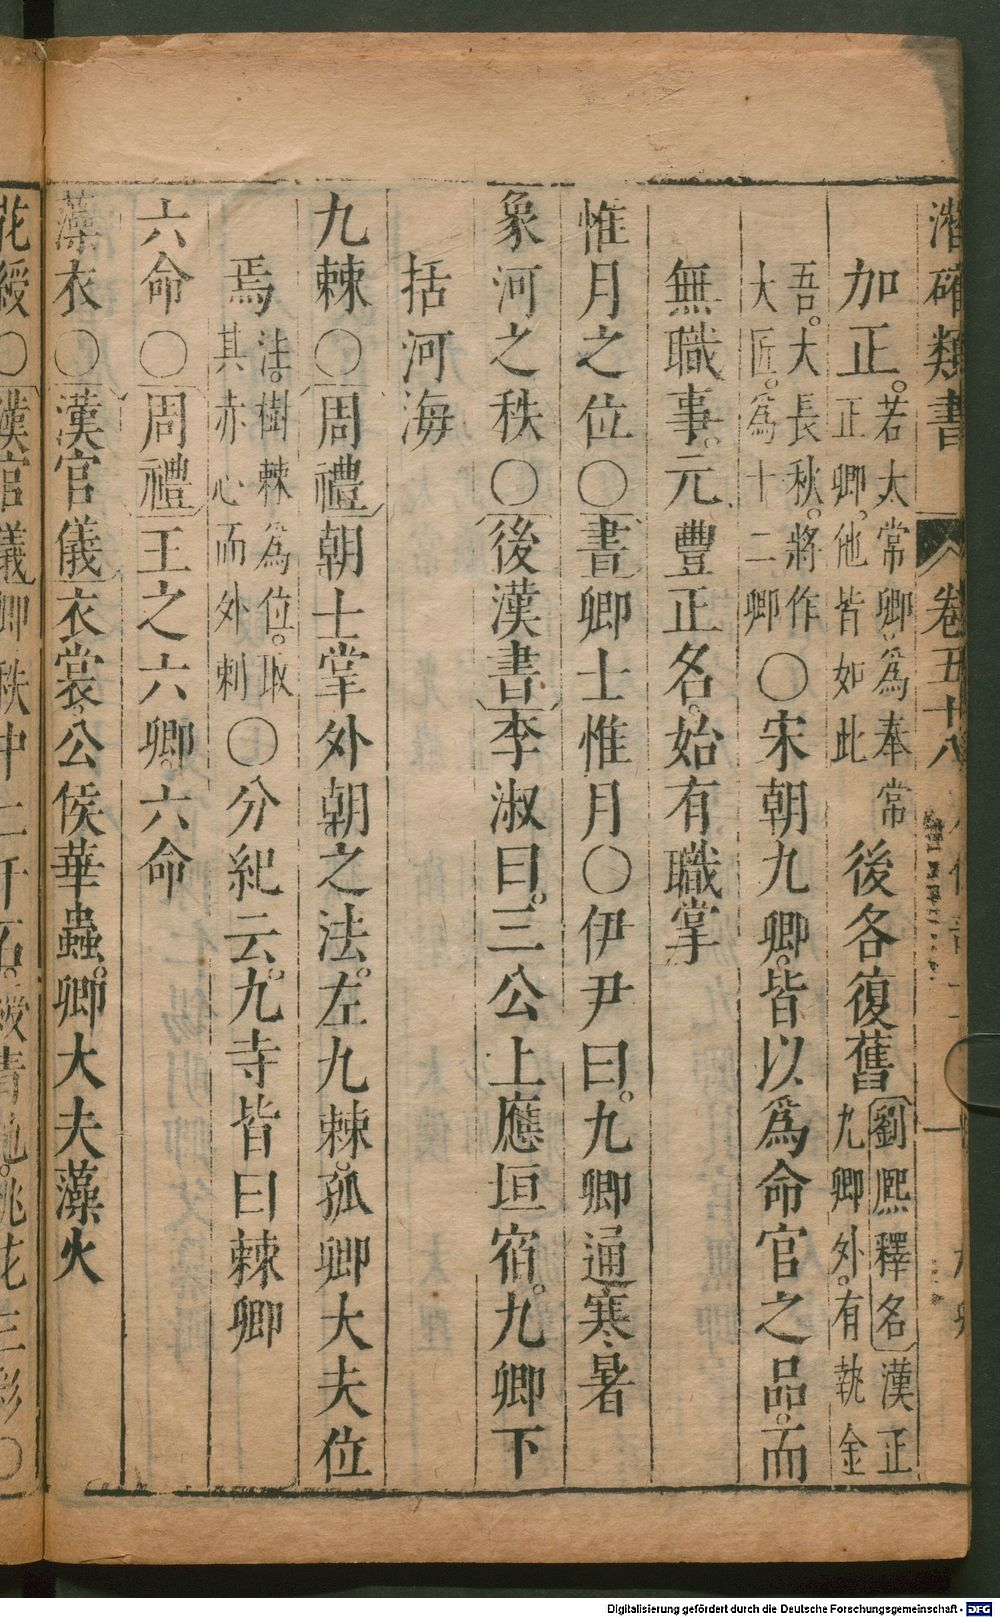 潛確類書 卷五十八
加正。若太常卿。爲奉常
正卿。他皆如此
後各復舊劉熈釋名漢正
九卿外。有執金
吾。大長秋。將作
大匠。爲十二卿
〇宋朝九卿。皆以爲命官之品。而
無職事。元豐正名。始有職掌
惟月之位〇書卿士惟月〇伊尹曰。九卿通寒暑
象河之秩〇後漢書李淑曰。三公上應垣宿。九卿下
括河海
九棘〇周禮朝士掌外朝之法。左九棘。孤卿大夫位
焉法。樹棘爲位。取
其赤心而外刺
〇分紀云。九寺皆曰棘卿
六命〇周禮王之六卿。六命
藻衣〇漢官儀衣裳。公侯華蟲。卿大夫藻火
花綬〇漢官儀卿秩中二千石。綬青地。桃花三彩〇
Digitalisierung gefördert durch die Deutsche Forschungsgemeinschaft - DFG